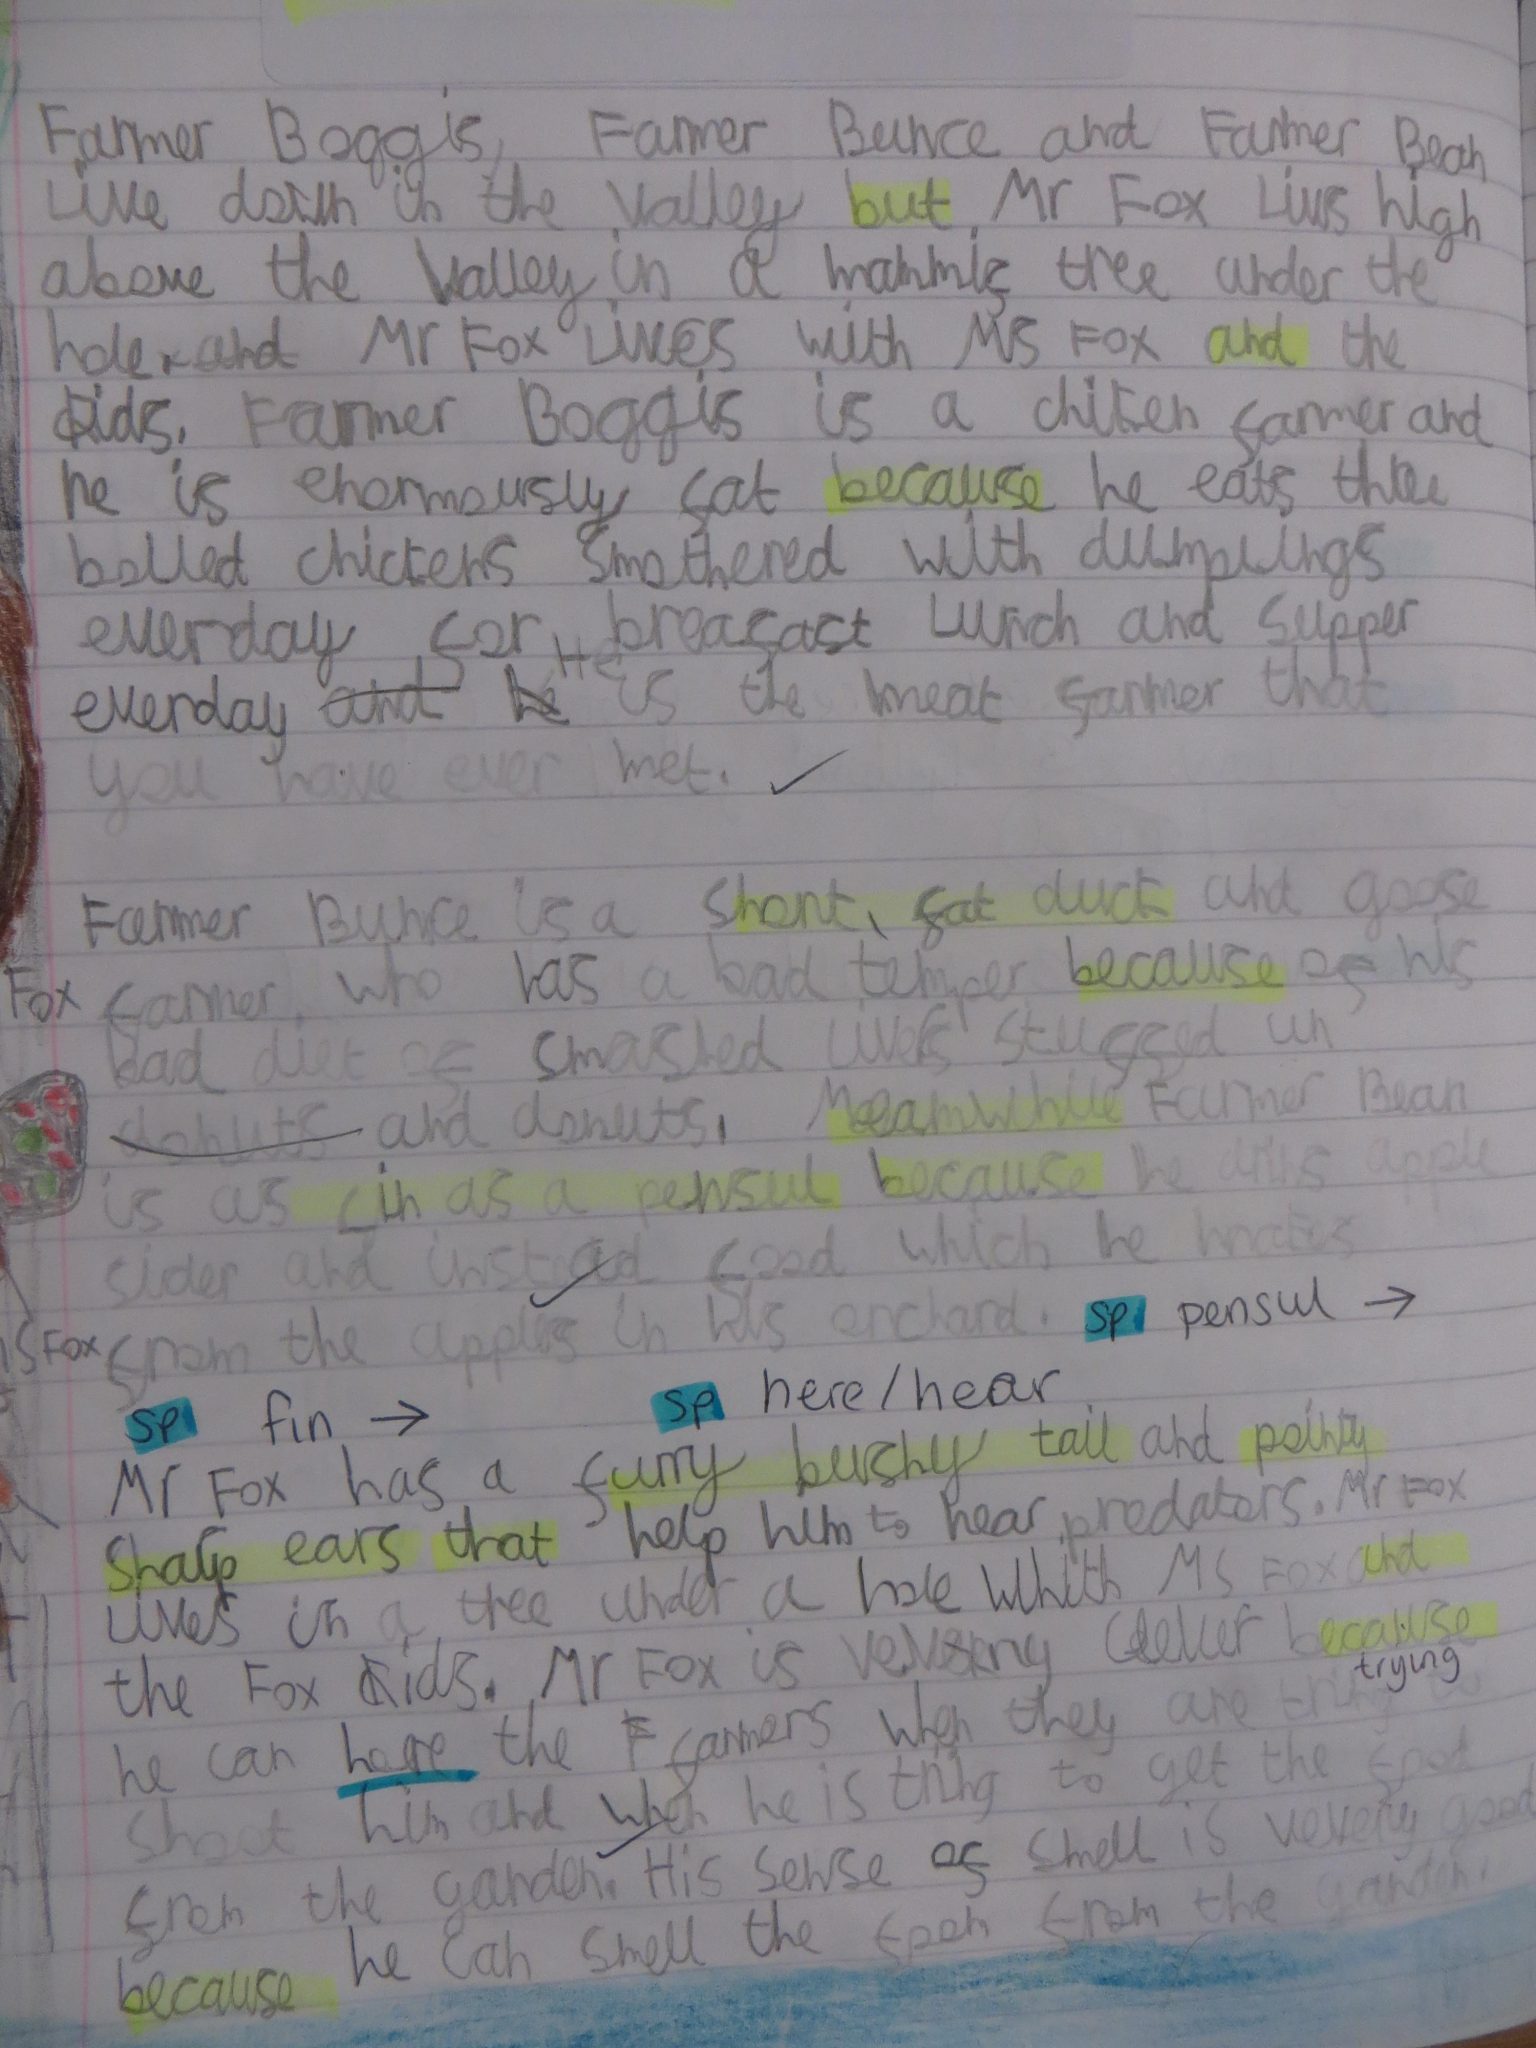 Farmer Boggis, Farmer Bunce and Farmer Bean
Live down in the valley but Mr Fox Lives high
above the valley in a tree under the
hole and Mr Fox Lives with Ms Fox and the
kids. Farmer Boggis is a chiken farmer and
he is enormously fat because he eats three
bolled chickens smothered with dumplings
everday for breafast Lunch and supper
everday and he He is the meat farmer that
you have ever met.
Farmer Bunce is a short, fat duck and goose
Fox farmer, who has a bad temper because of his
bad diet of smashed livers stuffed in
donuts and donuts. Meanwhile Farmer Bean
is as fin as a pensul because he drins apple
sider and instead food which he
Fox from the apples in his orchard. sp pensul →
sp fin → sp here/hear
Mr Fox has a furry bushy tail and pointy
sharp ears that help him to hear predators. Mr Fox
Lives in a tree under a hole whith Ms Fox and
the Fox kids. Mr Fox is because
trying
he can the farmers when they are tring to
shoot him and when he is tring to get the food
from the garden. His sense of smell is good
because he can smell the from the garden.